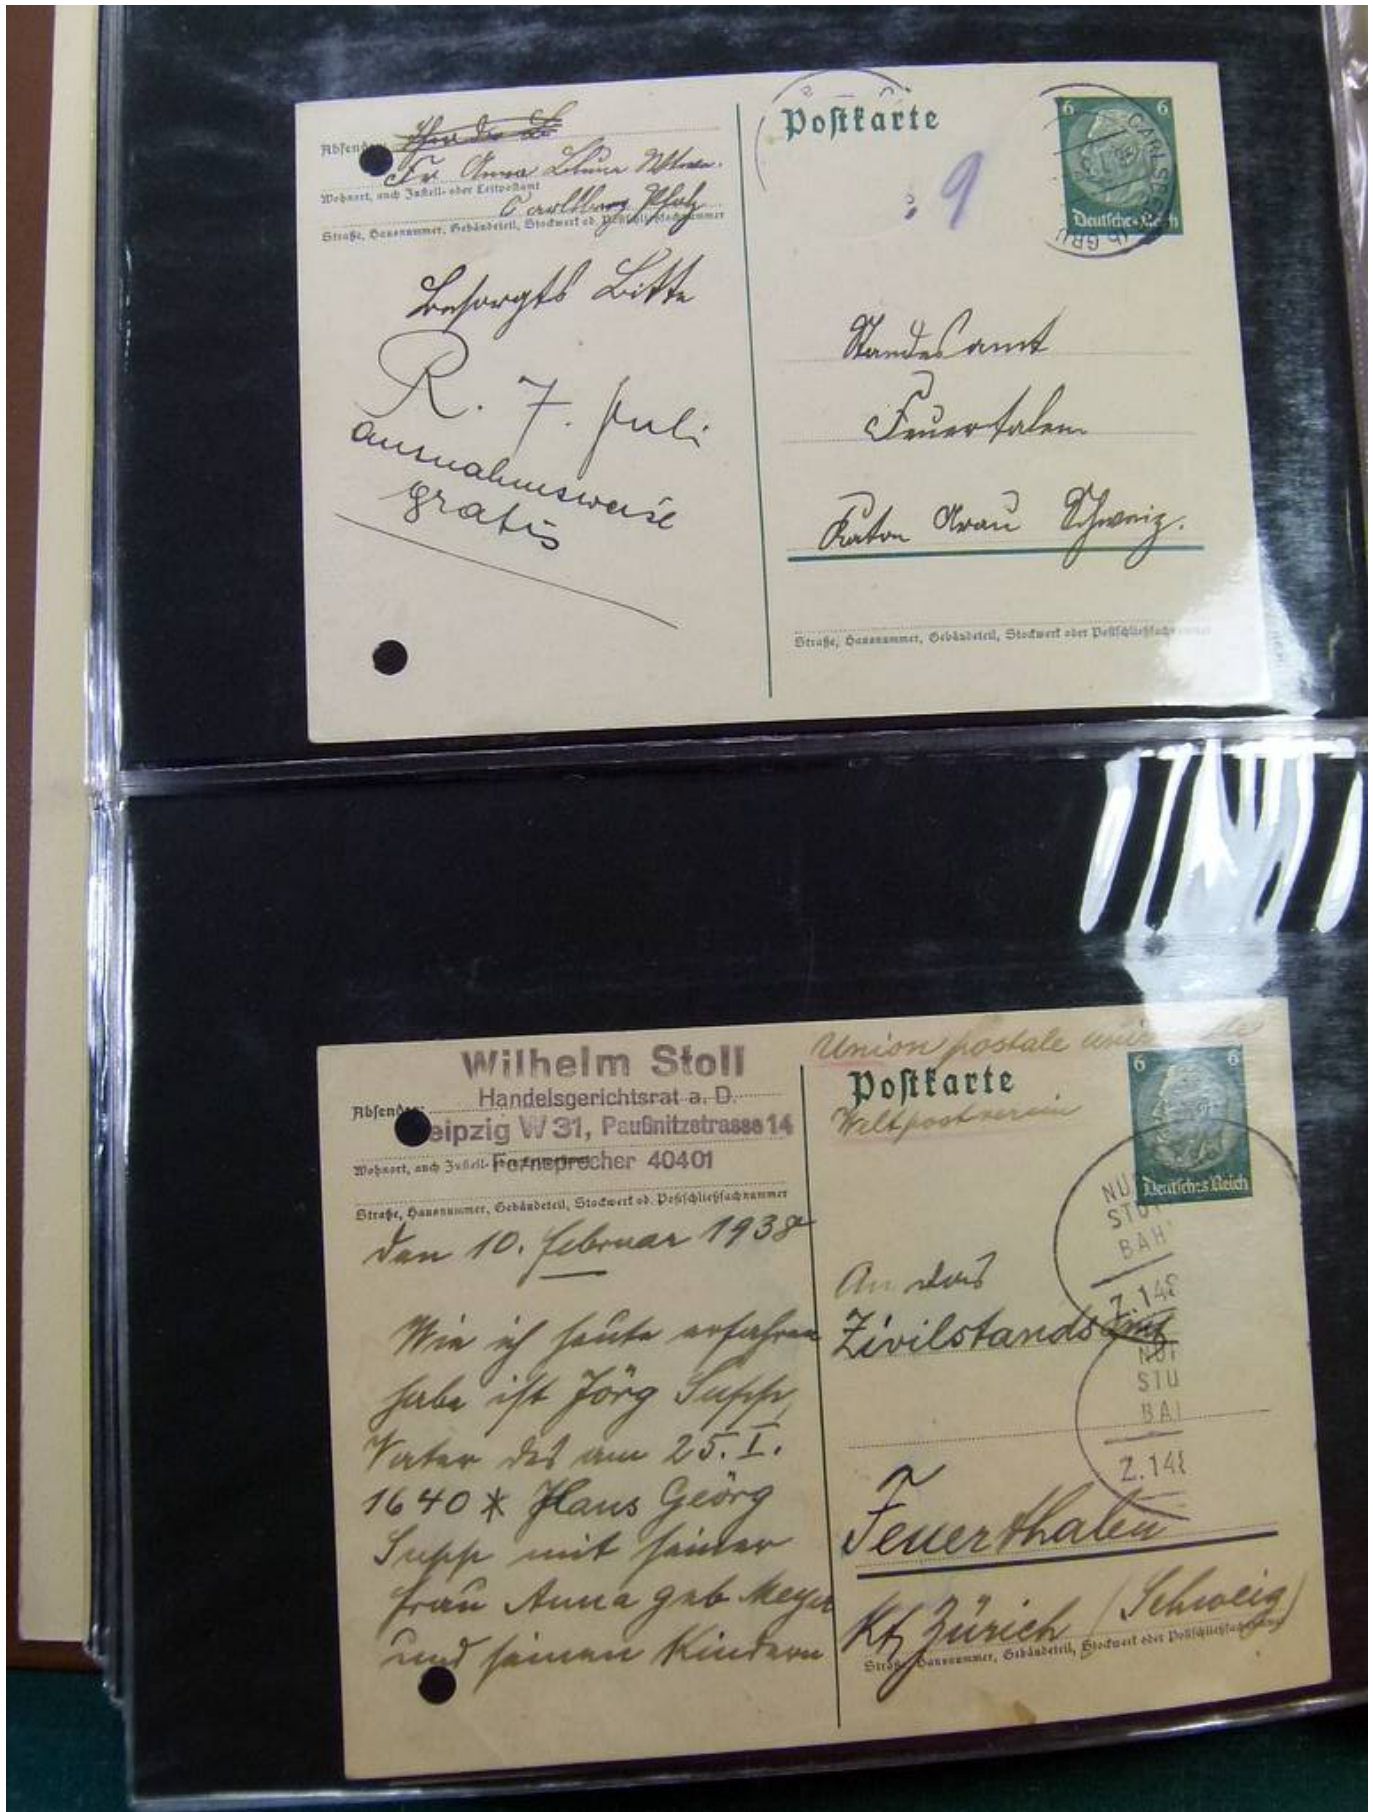 Postkarte
6 6
Deutsches Reich
CARLSBERG
9
Absender:
Fr Anna Blum Wtwe.
Wohnort, auch Zustell- oder Leitpostamt
Carlsberg Pfalz
Straße, Hausnummer, Gebäudeteil, Stockwerk od. Postschließfachnummer
Besorgts Bitte
R. 7. Juli
ausnahmsweise
gratis
Standesamt
Feuertalen
Katon Arau Schweiz.
Straße, Hausnummer, Gebäudeteil, Stockwerk oder Postschließfachnummer
Wilhelm Stoll
Handelsgerichtsrat a. D.
Absender:
Leipzig W 31, Paußnitzstrasse 14
Wohnort, auch Zustell-
Fernsprecher 40401
Straße, Hausnummer, Gebäudeteil, Stockwerk od. Postschließfachnummer
den 10. Februar 1938
Wie ich heute erfahren
habe ist Jörg Supp,
Vater des am 25. I.
1640 * Hans Georg
Supp mit seiner
Frau Anna geb Meyer
und seinen Kindern
Union postale
Postkarte
Weltpostverein
6 6
Deutsches Reich
NU
STU
BAH
Z.148
STU
BA
Z.148
An das
Zivilstandsamt
Feuerthalen
Kt. Zürich (Schweiz)
Straße, Hausnummer, Gebäudeteil, Stockwerk oder Postschließfachnummer